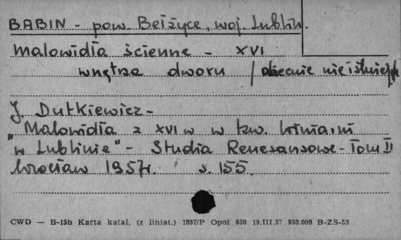 BABIN - pow. Bełżyce, woj. Lublin.
Malowidła ścienne - XVI
wnętrza dworu / obecnie nie istnieje
J. Dutkiewicz -
"Malowidła z XVI w w tzw. Winiarni
w Lublinie" - Studia Renesansowe - Tom II
Wrocław 1957r. s. 155
CWD — B-15b Karta katal. (z liniat.) 1057/P Opol 030 19.III.57 950.000 B-ZS-53